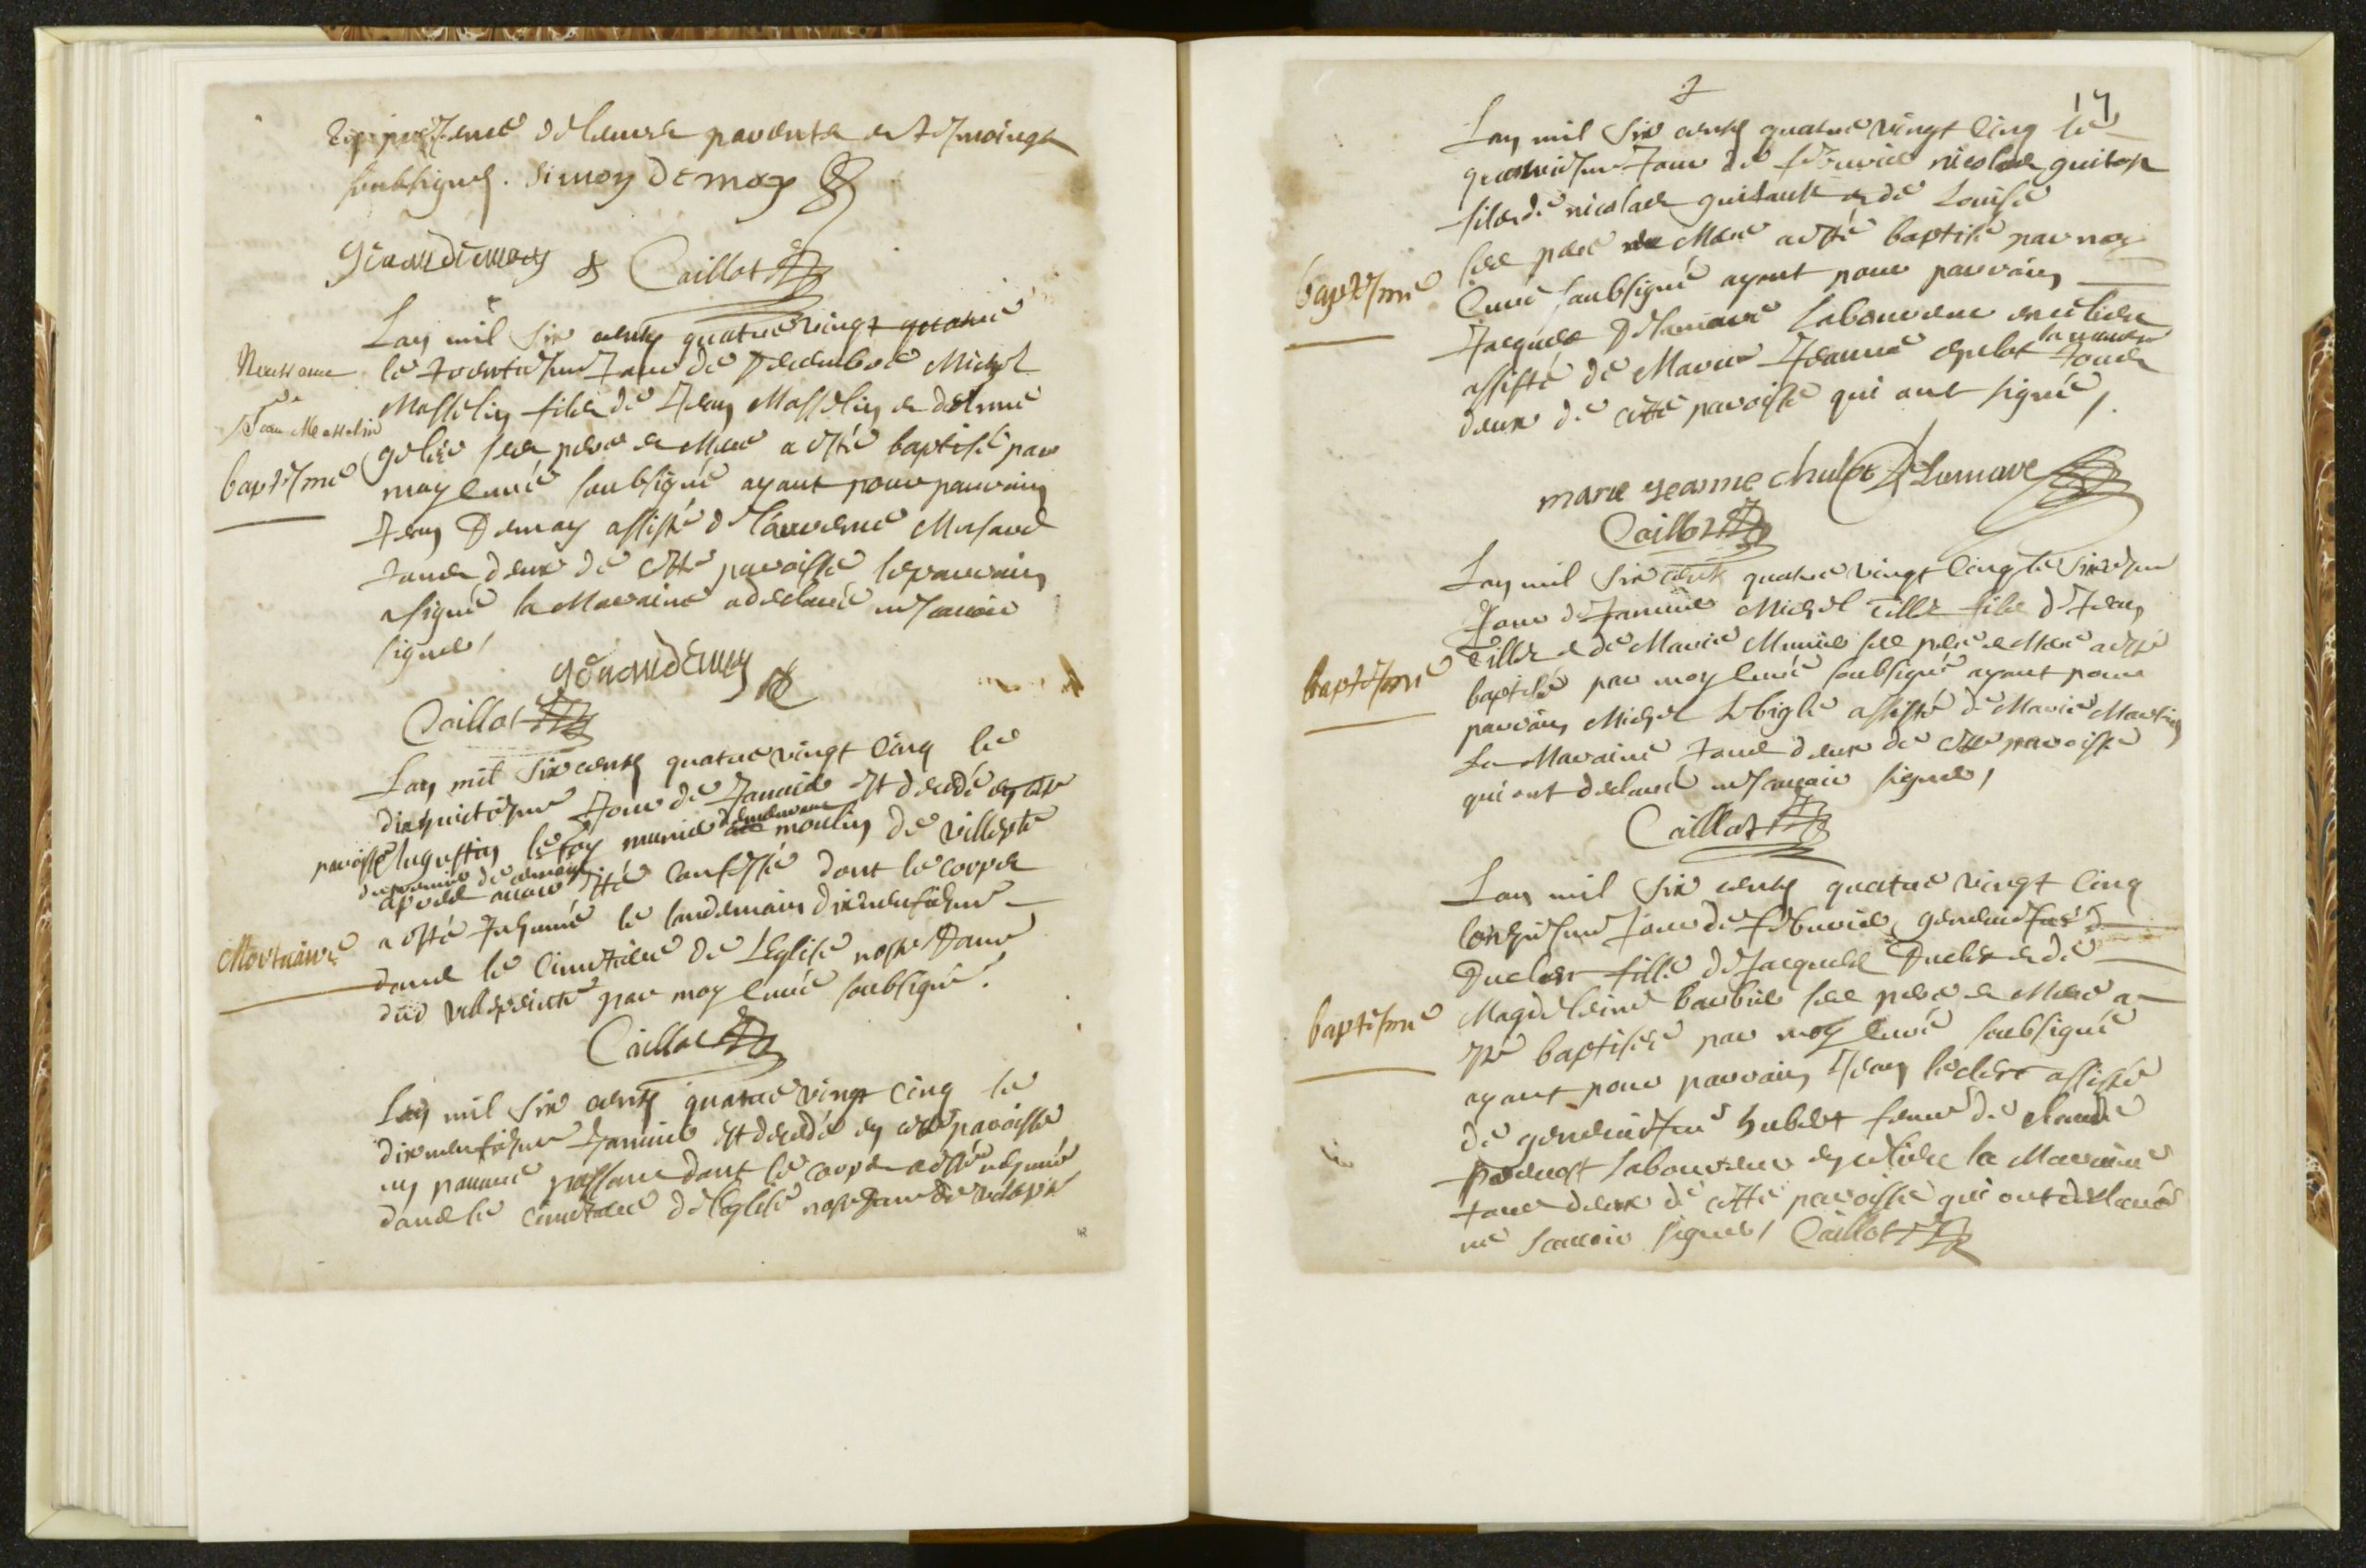 En presence de leurs parents et tesmoings
soubsignes. Simon Demoy
Caillot
Lan mil six cents quatre vingt quatre
le trentiesme Jour de Decembre Michel
Masselin fils de Jean Masselin et
ses pere et Mere a esté baptisé par
moy Curé soubsigné ayant pour parrain
Jean Demoy assisté de
tous deux de cette paroisse le parrain
a signé la Maraine a declaré ne scavoir
signer /
Naissance
Jean Masselin
baptesme
Caillot
Lan mil six cents quatre vingt cinq le
dixhuictiesme Jour de Janvier est decedé en cette
paroisse Augustin munier demeurant moulin de
apres avoir esté confessé dont le corps
a esté Inhumé le landemain dixneufiesme
dans le Cimetiere de LEglise nostre Dame
par moy Curé soubsigné.
Mortuaire
Caillot
Lan mil six cents quatre vingt cinq le
dixneufiesme Janvier est decedé en cette paroisse
un pauvre passant dont le corps a esté inhumé
dans le cimetiere de leglise nostre Dame de
17
Lan mil six cents quatre vingt cinq le
Jour de febvrier nicolas
fils de nicolas et de Louise
ses pere et Mere a esté baptisé par moy
Curé soubsigné ayant pour parrain
Jacques Delamare laboureur
assisté de Marie Jeanne la maraine tous
deux de cette paroisse qui ont signé /.
baptesme
marie Jeanne Delamare
Caillot
Lan mil six cents quatre vingt cinq le sixiesme
Jour de Janvier Michel Tiller fils de Jean
Tiller et de Marie Munier ses pere et Mere a esté
baptisé par moy Curé soubsigné ayant pour
parrain Michel assisté de Marie Martin
La Maraine tous deux de cette paroisse
qui ont declaré ne scavoir signer /
baptesme
Caillot
Lan mil six cents quatre vingt cinq
Jour de febvrier genevieve
fille de Jacques et de
Magdeleine barbier ses pere et Mere a
esté baptisée par moy Curé soubsigné
ayant pour parrain Jean leclerc assisté
de genevieve hubert femme de claude
prevost laboureur la Maraine
tous deux de cette paroisse qui ont declaré
ne scavoir signer / Caillot
baptesme